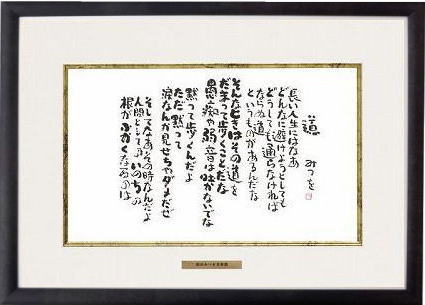 道
みつを
長い人生にはなあ
どんなに避けようとしても
どうしても通らなければ
ならぬ道
というものがあるんだな
そんなときはその道を
だまって歩くことだな
愚痴や弱音は吐かないでな
黙って歩くんだよ
ただ黙って
涙なんか見せちゃダメだぜ
そしてなあその時なんだよ
人間としてのいのちの
根がふかくなるのは